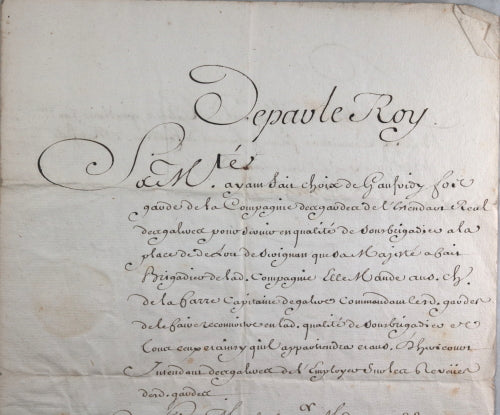 De par le Roy.
Sa M.té ayant fait choix de Gaufridy fore
garde de la Compagnie des gardes de l'Etendart Reel
des galeres pour servir en qualité de sousbrigadier a la
place de de Lori de Suignan que sa Majesté a fait
Brigadier de lad. Compagnie Elle Mande au s. Ch.
de la barre Capitaine de galeres Commandant lesd. gardes
de le faire reconnoitre en lad. qualité de sousbrigadier et
tous ceux et ainsy qu'il appartiendra et au s.
Intendant des galeres de l'Employer sur les Reveües
desd. gardes